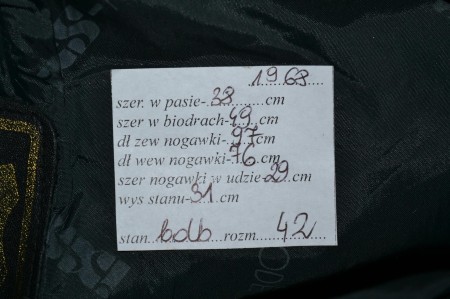 1968
szer. w pasie-38cm
szer w biodrach-49.cm
dł zew nogawki-97cm
dł wew nogawki-76cm
szer nogawki w udzie-29cm
wys stanu-31.cm
stan..bdb...rozm...42